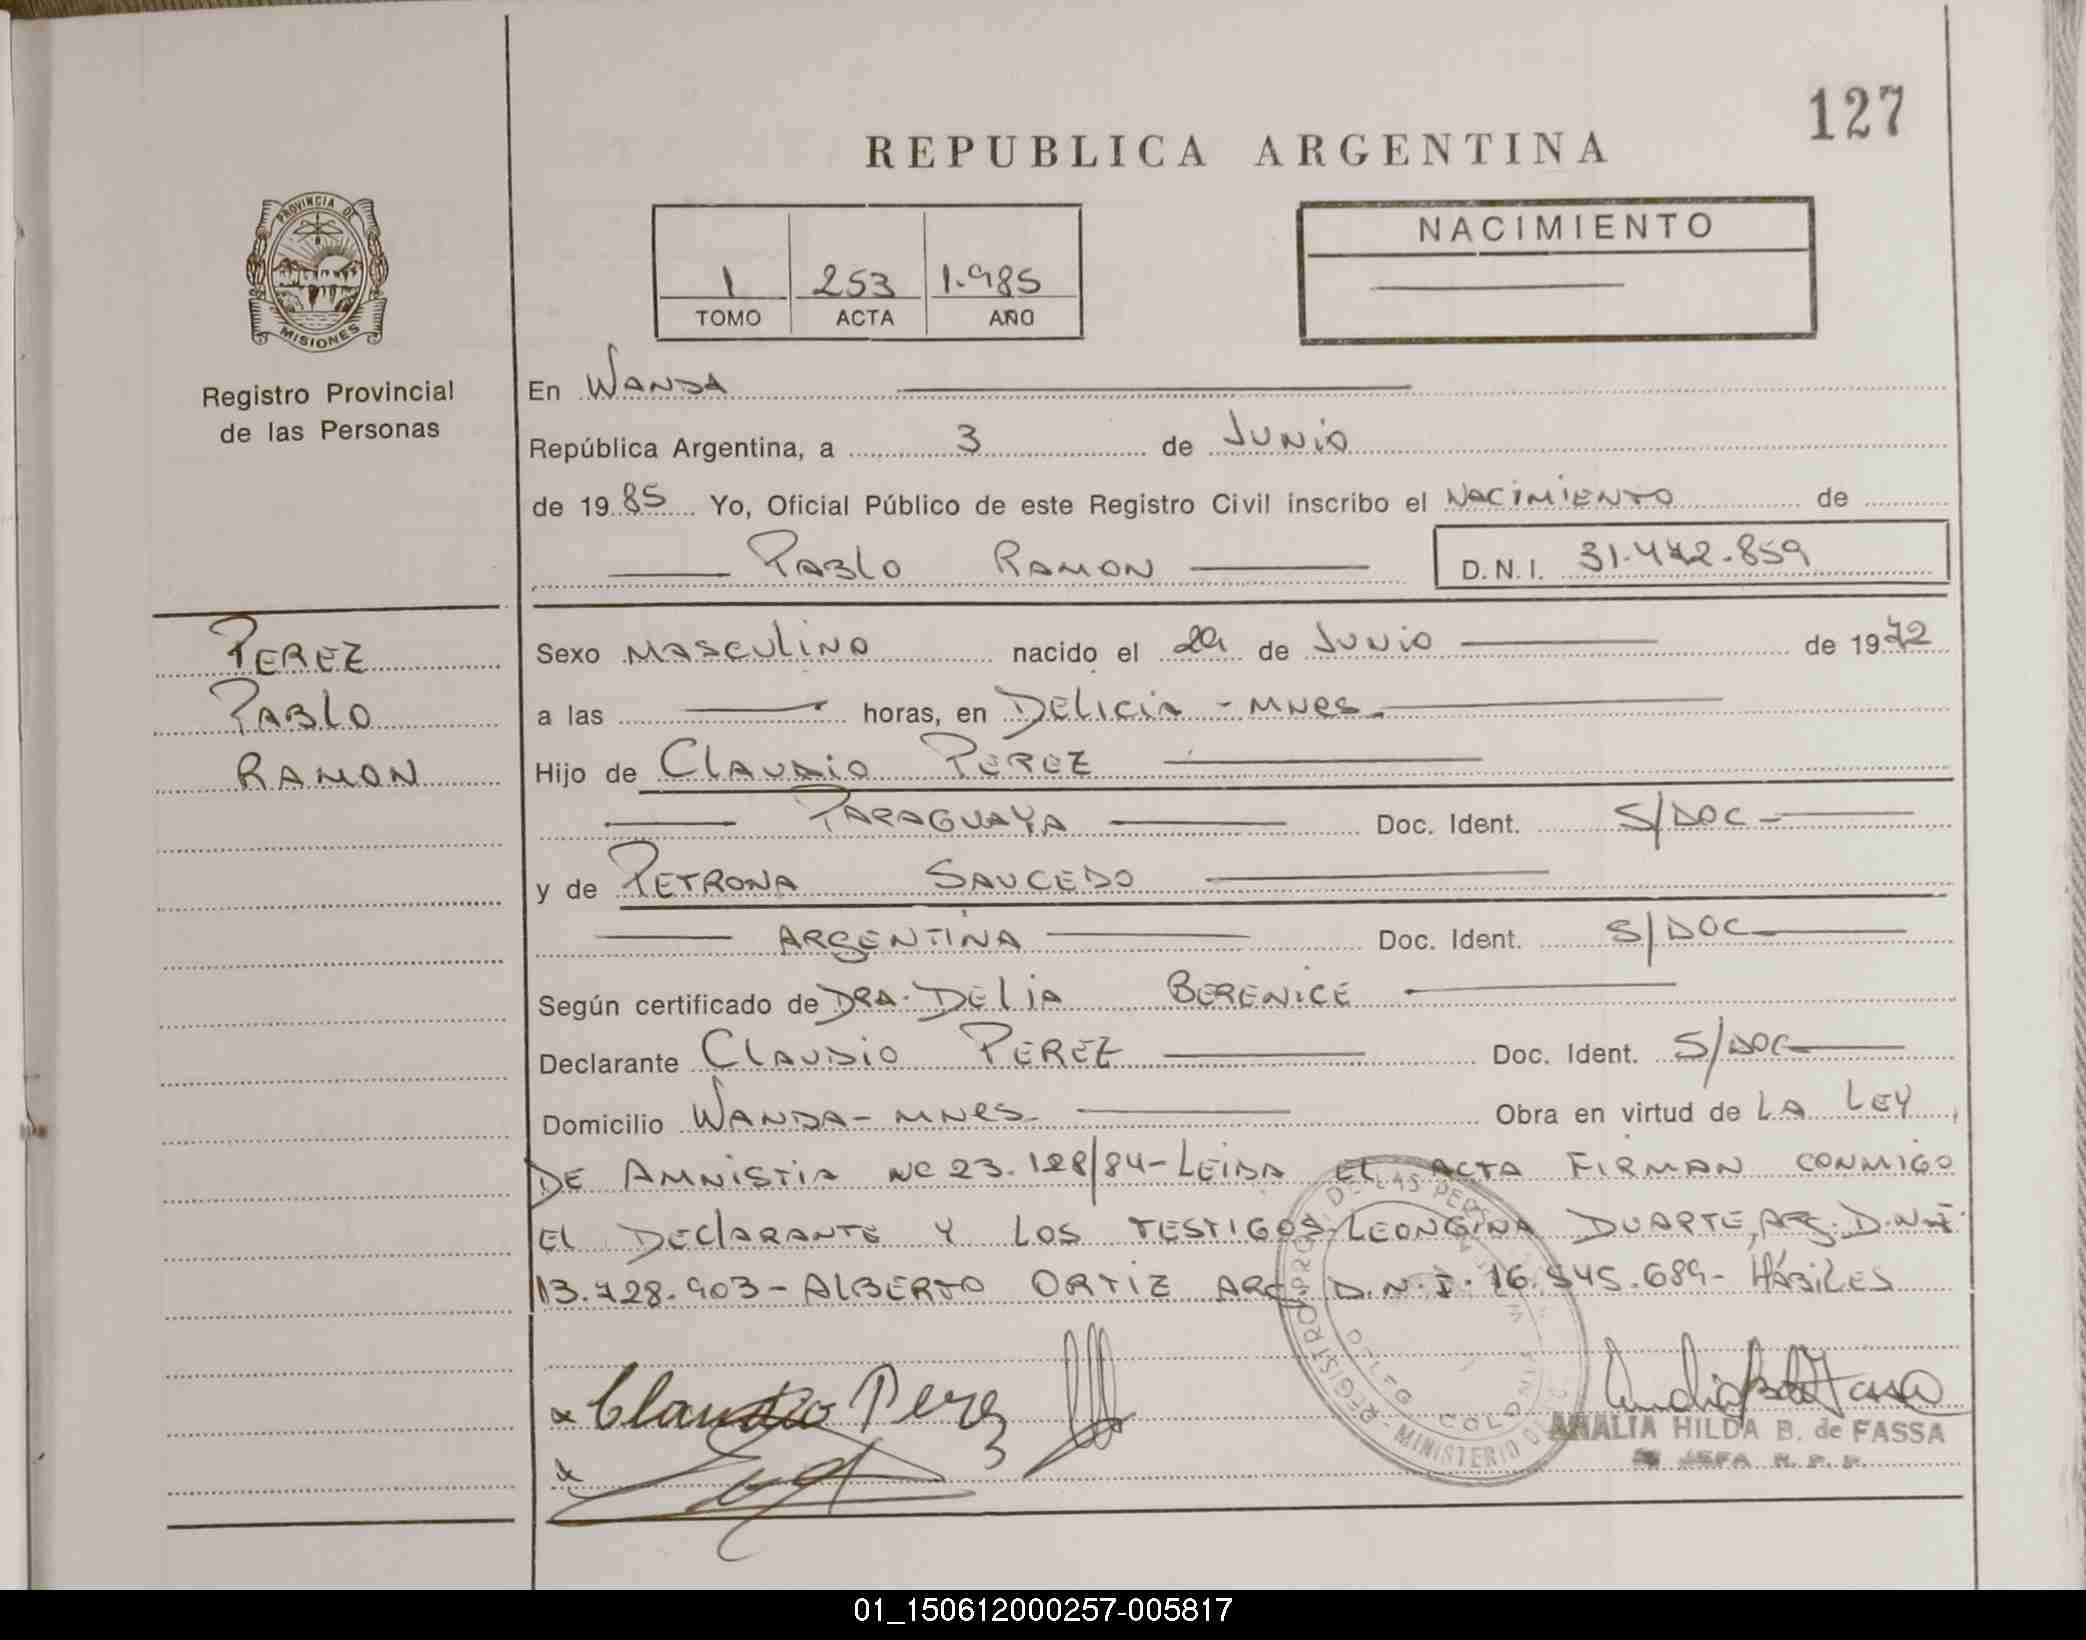 127
REPUBLICA ARGENTINA
PROVINCIA DE
MISIONES
Registro Provincial
de las Personas
1 253 1.985
TOMO ACTA AÑO
NACIMIENTO
En WANDA
República Argentina, a 3 de JUNIO
de 19 85 Yo, Oficial Público de este Registro Civil inscribo el NACIMIENTO de
PABLO RAMON D.N.I. 31.472.859
PEREZ
PABLO
RAMON
Sexo MASCULINO nacido el 29 de JUNIO de 19 72
a las horas, en DELICIA - MNES
Hijo de CLAUDIO PEREZ
PARAGUAYA Doc. Ident. S/DOC
y de PETRONA SAUCEDO
ARGENTINA Doc. Ident. S/DOC
Según certificado de DRA. DELIA BERENICE
Declarante CLAUDIO PEREZ Doc. Ident. S/DOC
Domicilio WANDA - MNES Obra en virtud de LA LEY
DE AMNISTIA Nº 23.128/84 - LEIDA EL ACTA FIRMAN CONMIGO
EL DECLARANTE Y LOS TESTIGOS LEONGINA DUARTE, ARG. D.N.I.
13.728.903 - ALBERTO ORTIZ ARG. D.N.I. 16.545.689 - HÁBILES
Claudio Perez
AMALIA HILDA B. de FASSA
JEFA R. P. P.
01_150612000257-005817